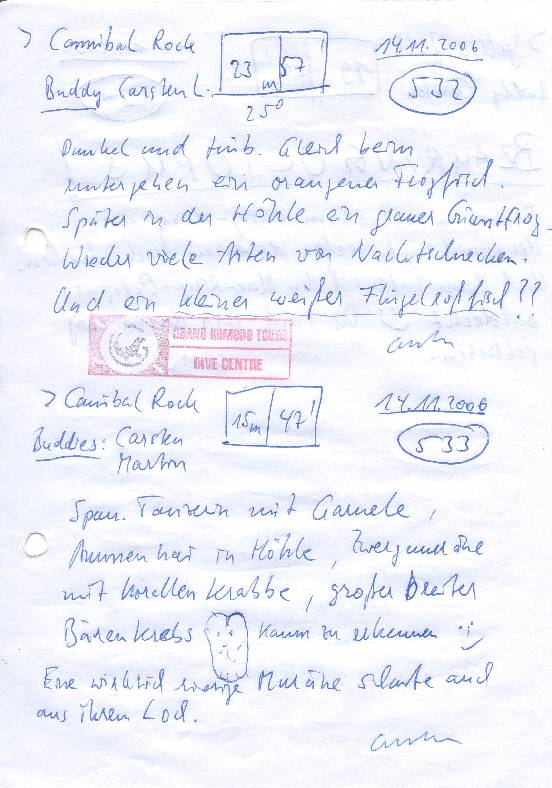 > Cannibal Rock
23 m 57'
14.11.2006
Buddy Carsten L.
25°
532
Dunkel und trüb. Gleich beim
untergehen ein orangener Frogfisch.
Später in der Höhle ein grauer Giantfrog.
Wieder viele Arten von Nachtschnecken.
Und ein kleiner weißer Flügelroßfisch??
GRAND KOMODO TOURS
DIVE CENTRE
> Cannibal Rock
15m 47'
14.11.2006
Buddies: Carsten
Martin
533
Span. Tänzerin mit Garnele,
Ammenhai in Höhle, Zwergmuräne
mit Korallenkrabbe, großer breiter
Bärenkrebs kaum zu erkennen :-)
Eine wirklich riesige Muräne schaute auch
aus ihrem Loch.